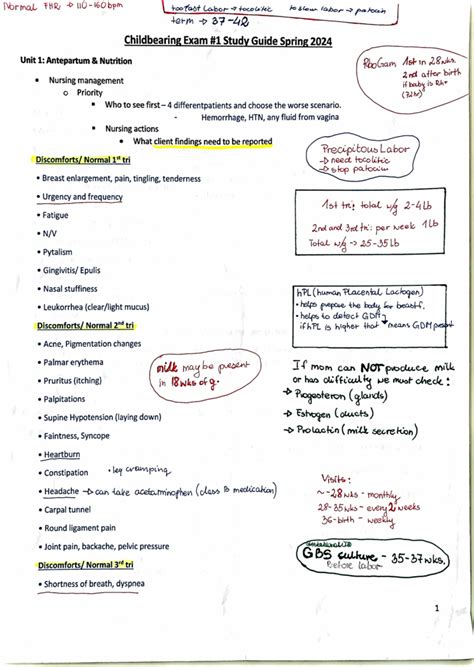 Normal FHR → 110-160 bpm
too fast labor → tocolitic
too slow labor → patocin
term → 37-42
Childbearing Exam #1 Study Guide Spring 2024
Unit 1: Antepartum & Nutrition
• Nursing management
o Priority
▪ Who to see first – 4 differentpatients and choose the worse scenario.
- Hemorrhage, HTN, any fluid from vagina
▪ Nursing actions
▪ What client findings need to be reported
RhoGam 1st in 28wks
2nd after birth
if baby is Rh+
(72h)
Precipitous Labor
→ need tocolitic
→ stop patocin
Discomforts/ Normal 1st tri
• Breast enlargement, pain, tingling, tenderness
• Urgency and frequency
• Fatigue
• N/V
• Pytalism
• Gingivitis/ Epulis
• Nasal stuffiness
• Leukorrhea (clear/light mucus)
1st tri: total w/g 2-4 lb
2nd and 3rd tri: per week 1 lb
Total w/g → 25-35 lb
hPL (human Placental Lactogen)
• helps prepare the body for breastf.
• helps to detect GDM
if hPL is higher that means GDM present
Discomforts/ Normal 2nd tri
• Acne, Pigmentation changes
• Palmar erythema
• Pruritus (itching)
• Palpitations
• Supine Hypotension (laying down)
• Faintness, Syncope
• Heartburn
• Constipation • leg cramping
• Headache → can take acetominophen (class B medication)
• Carpal tunnel
• Round ligament pain
• Joint pain, backache, pelvic pressure
milk may be present
in 18 wks of g.
If mom can NOT produce milk
or has difficulty we must check:
→ Progesteron (glands)
→ Estrogen (ducts)
→ Prolactin (milk secretion)
Visits:
~ -28wks - monthly
28-35wks - every 2 weeks
36-birth - weekly
GBS culture - 35-37wks.
before labor
Discomforts/ Normal 3rd tri
• Shortness of breath, dyspnea
1